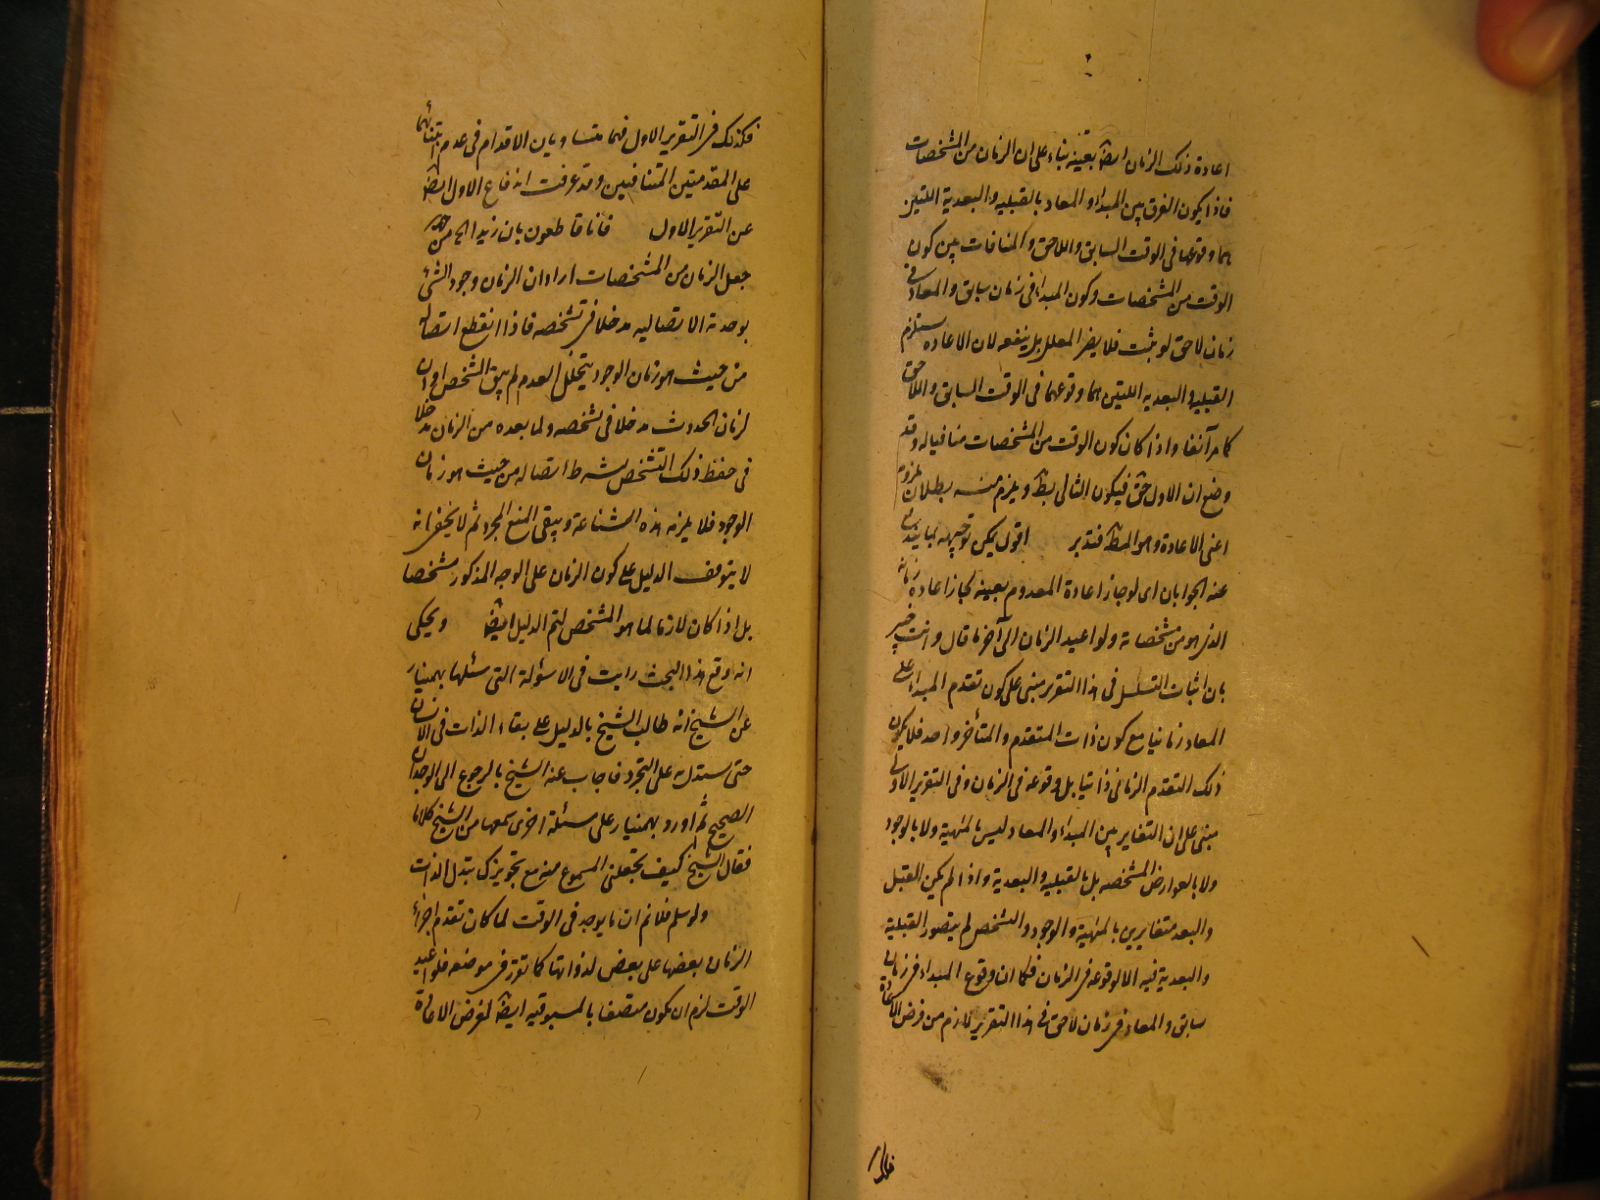 اعادة ذلك الزمان ايضا بعينه بناء على ان الزمان من المشخصات
فاذا يكون الفرق بين المبداء و المعاد بالقبلية و البعدية اللتين
هما وقوعها فى الوقت السابق و اللاحق و المنافات بين كون
الوقت من المشخصات و كون المبداء فى زمان سابق و المعاد فى
زمان لاحق لو ثبت فلا يضر المعلل بل ينفعه لان الاعاده يستلزم
القبلية و البعديه اللتين هما وقوعهما فى الوقت السابق و اللاحق
كما مر آنفا و اذا كان كون الوقت من المشخصات منافيا له وقد
وضع ان الاول حق فيكون الثانى بط و يلزم منه بطلان ملزومه
اعنى الاعادة و هو المط فتدبر اقول يمكن توجيهه بما يندفع
عنه الجواب بان اى لو جاز اعادة المعدوم بعينه لجاز اعاده زمانه
الذى هو من مشخصاته و لو اعيد الزمان الى آخر ما قال و انت خبير
بان اثبات التسلسل فى هذا التقرير مبنى على كون تقدم المبداء على
المعاد زمانيا مع كون ذات المتقدم و المتأخر واحد فلا يكون
ذلك التقدم الزمانى ذاتيا بل وقوعه فى الزمان و فى التقرير الاول
مبنى على ان التغاير بين المبداء و المعاد ليس بالمهية و لا بالوجود
و لا بالعوارض المشخصه بل بالقبليه و البعدية و اذا لم يكن القبل
و البعد متغايرين بالمهية و الوجود و الشخص لم يتصور القبلية
و البعدية فيه الا لوقوعه فى الزمان فكما ان وقوع المبداء فى زمان
سابق و المعاد فى زمان لاحق فى هذا التقرير لازم من فرض الاعادة
فكذلك فى التقرير الاول فهما متساويان الاقدام فى عدم ابتنائهما
على المقدمتين المتنافيين و قد عرفت اندفاع الاول ايضا
عن التقرير الاول فانا قاطعون بان زيدا الخ من
جعل الزمان من المشخصات اراد ان الزمان وجود الشئ
بوحدته الاتصاليه مدخلا فى تشخصه فاذا انقطع اتصاله
من حيث هو زمان الوجود بتخلل العدم لم يبق الشخص او ان
لزمان الحدوث مدخلا فى تشخصه و لما بعده من الزمان مدخلا
فى حفظ ذلك التشخص بشرط اتصاله من حيث هو زمان
الوجود فلا يلزمه هذه الشناعة و يبقى المنع المجرد ثم لا يخفى انه
لا يتوقف الدليل على كون الزمان على الوجه المذكور مشخصا
بل اذا كان لازما لما هو المشخص لتم الدليل ايضا و يحكى
انه وقع هذا البحث رايت فى الاسؤلة التى سئلها بهمنيار
عن الشيخ انه طالب الشيخ بالدليل على بقاء الذات فى الانسان
حتى يستدل به على التجرد فاجاب عنه الشيخ بالرجوع الى الوجدان
الصحيح ثم اورد بهمنيار على مسئلة اخرى سمعها من الشيخ كلاما
فقال الشيخ كيف تجعلنى المسموع منه مع تجويزك تبدل الذات
و لو سلم فلا نم ان ما يوجد فى الوقت لما كان تقدم اجزاء
الزمان بعضها على بعض لذواتها كما تقرر فى موضعه فلو اعيد
الوقت لزم ان يكون متصفا بالمسبوقيه ايضا لفرض الاعادة